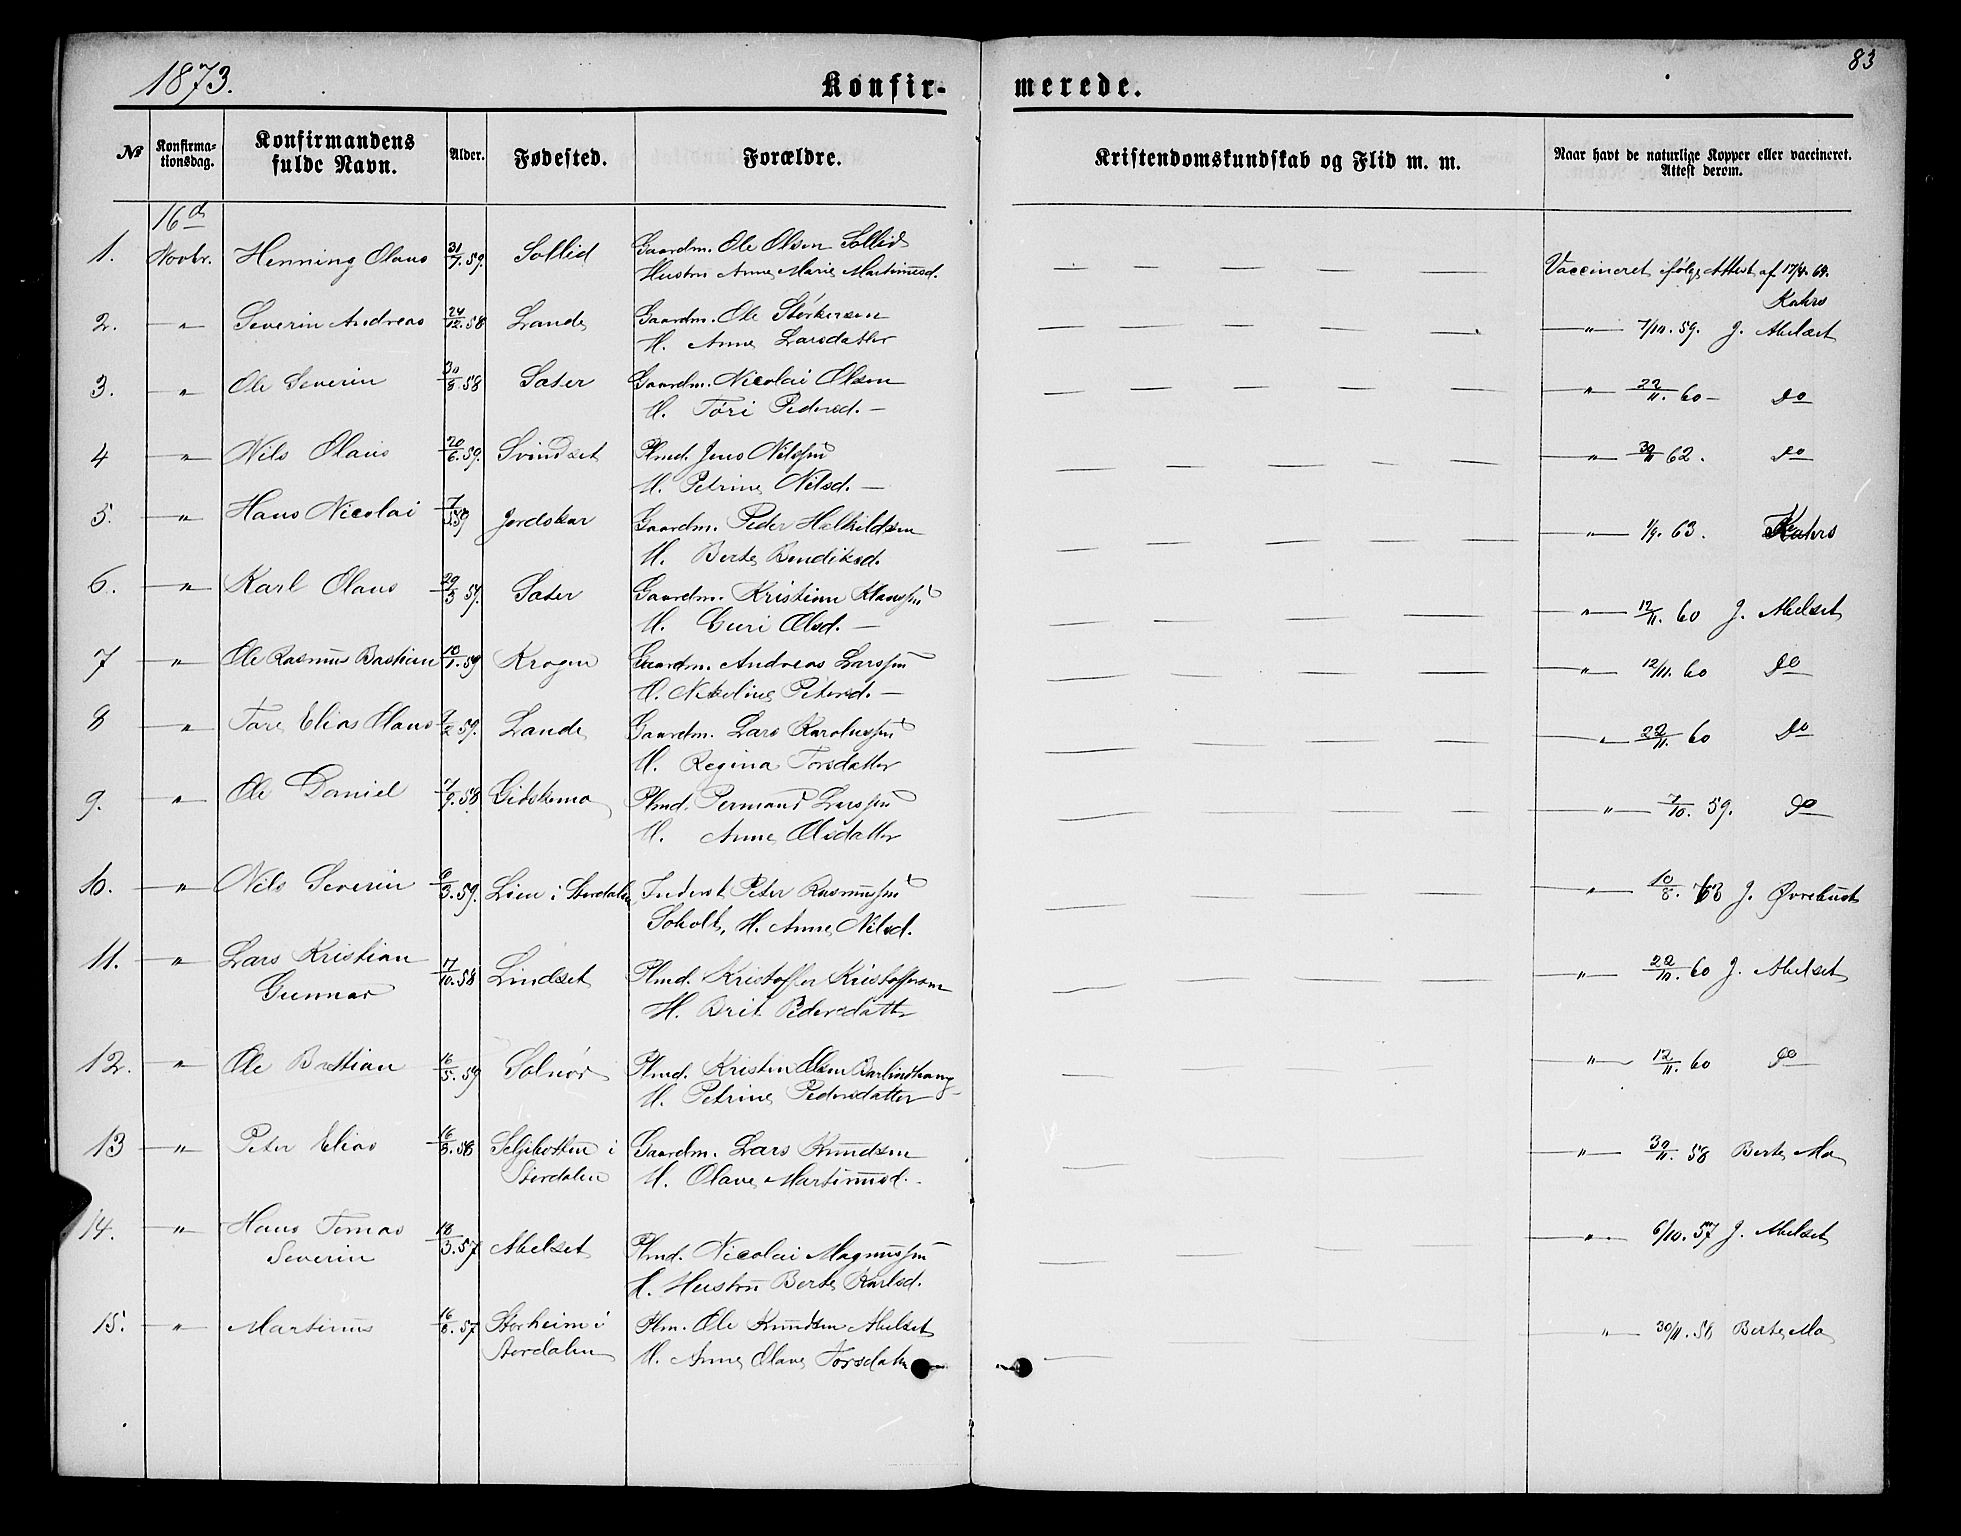 1873. Konfirmerede. 83
№ Konfirmationsdag. Konfirmandens fulde Navn. Alder. Fødested. Forældre. Kristendomskundskab og Flid m. m. Naar havt de naturlige Kopper eller vaccineret. Attest derom.
16d
1. Novbr. Henning Olaus 31/7.59. Sollid Gaardm. Ole Olsen Sollid
Hustru Anne Marie Martinusd. — — — — — — Vaccineret ifølge Attest af 17/4.69.
Kahrs
2. —„— Severin Andreas 24/12.58 Lande Gaardm. Ole Størkersen
H. Anne Larsdatter — — — — — — —„— 7/10.59. J. Abelset
3. —„— Ole Severin 30/8.58 Sæter Gaardm. Nicolai Olsen
H. Tøri Pedersd. — — — — — — — —„— 22/11.60— Do
4 —„— Nils Olaus 20/6.59. Svindset Plmd. Jens Nilssen
H. Petrine Nilsd. — — — — — — — —„— 30/11 62. Do
5. —„— Hans Nicolai 7/5.59 Jordskar Gaardm. Peder Helkildsen
H. Berte Bendiksd. — — — — — — —„— 1/9.63. Kahrs
6. —„— Karl Olaus 29/3 59. Sæter Gaardm. Kristian Klaussen
H. Guri Olsd. — — — — — — — —„— 12/11.60 J. Abelset
7 —„— Ole Rasmus Bastian 10/1.59 Krogen Gaardm. Andreas Larssen
H. Nikoline Petersd. — — — — — — — —„— 12/11.60 Do
8 —„— Tore Elias Olaus 7/2 59. Lande Gaardm. Lars Karolussen
H. Regina Torsdatter — — — — — — —„— 22/11.60 Do
9. —„— Ole Daniel 7/9.58 Gidskemo Plmd. Permand Larssen
H. Anne Olsdatter — — — — — — —„— 7/10.59. Do
10. —„— Nils Severin 6/3.59. Lien i Stordalen Inderst Peter Rasmussen
Soholt, H. Anne Nilsd. — — — — — — —„— 10/8.63 J. Øvrebust
11. —„— Lars Kristian
Gunnar 7/10.58 Lindset Plmd. Kristoffer Kristoffersen
H. Brit Pedersdatter — — — — — — —„— 22/11.60 J. Abelset
12. —„— Ole Bastian 16/5.59 Solnør Plmd. Kristen Olsen Barlindhaug
H. Petrine Pedersdatter — — — — — — —„— 12/11.60 Do
13 —„— Peter Elias 16/3.58 Seljebotten i
Stordalen Gaardm. Lars Knudsen
H. Olave Martinusd. — — — — — — —„— 30/11.58 Berte Mo
14. —„— Hans Tomas
Severin 18/3.57 Abelset Plmd. Nicolai Magnussen
H. Hustru Berte Karlsd. — — — — — — —„— 6/10.57 J. Abelset
15. —„— Martinus 16/8.57 Storheim i
Stordalen Plm. Ole Knudsen Abelset
H. Anne Olave Torsdatter — — —„— 30/11.58 Berte Mo